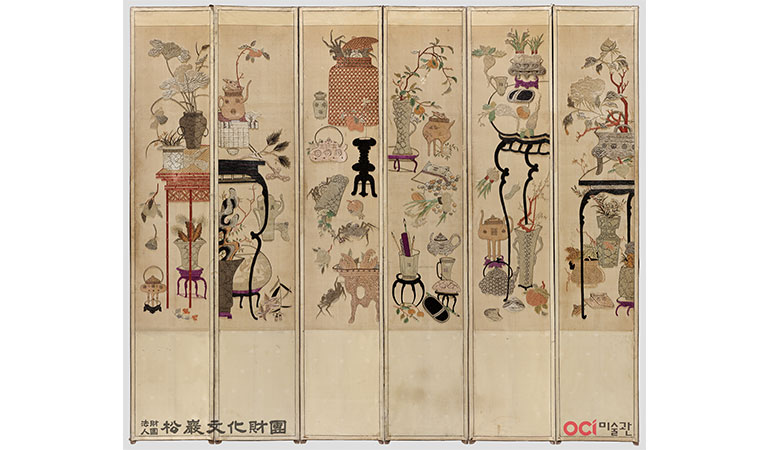 財團法人 松巖文化財團
OCI 미술관